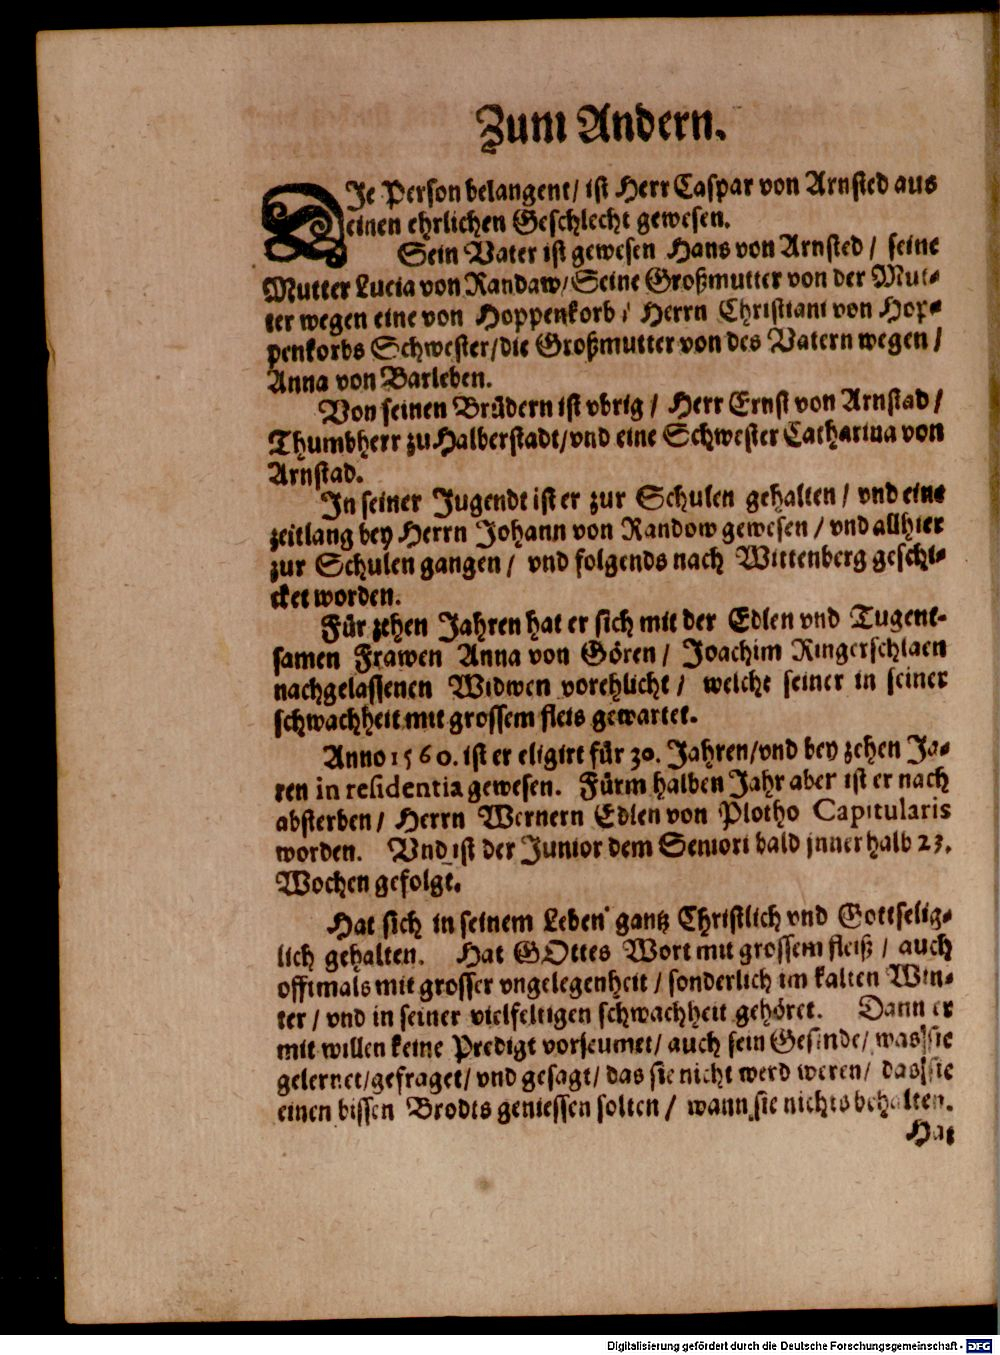 Zum Andern.
DIe Person belangent/ ist Herr Caspar von Arnsted aus
einen ehrlichen Geschlecht gewesen.
Sein Vater ist gewesen Hans von Arnsted / seine
Mutter Lucia von Randaw/ Seine Großmutter von der Mut-
ter wegen eine von Hoppenkorb / Herrn Christiani von Hop-
penkorbs Schwester/die Großmutter von des Vatern wegen /
Anna von Barleben.
Von seinen Brüdern ist vbrig / Herr Ernst von Arnstad /
Thumbherr zu Halberstadt/vnd eine Schwester Catharina von
Arnstad.
In seiner Jugendt ist er zur Schulen gehalten / vnd eine
zeitlang bey Herrn Johann von Randow gewesen / vnd allhier
zur Schulen gangen / vnd folgends nach Wittenberg geschi-
cket worden.
Für zehen Jahren hat er sich mit der Edlen vnd Tugent-
samen Frawen Anna von Gören / Joachim Ringerschlaen
nachgelassenen Widwen vorehlicht / welche seiner in seiner
schwachheit mit grossem fleis gewartet.
Anno 1560. ist er eligirt für 30. Jahren/vnd bey zehen Ja-
ren in residentia gewesen. Fürm halben Jahr aber ist er nach
absterben / Herrn Wernern Edlen von Plotho Capitularis
worden. Vnd ist der Junior dem Seniori bald jnnerhalb 23.
Wochen gefolgt.
Hat sich in seinem Leben gantz Christlich vnd Gottselig-
lich gehalten. Hat GOttes Wort mit grossem fleiß / auch
offtmals mit grosser vngelegenheit / sonderlich im kalten Win-
ter / vnd in seiner vielfeltigen schwachheit gehöret. Dann er
mit willen keine Predigt vorseumet/ auch sein Gesinde/ was sie
gelernet/gefraget/ vnd gesagt/ das sie nicht werd weren/ das sie
einen bissen Brodts geniessen solten / wann sie nichts behalten.
Hat
Digitalisierung gefördert durch die Deutsche Forschungsgemeinschaft - DFG